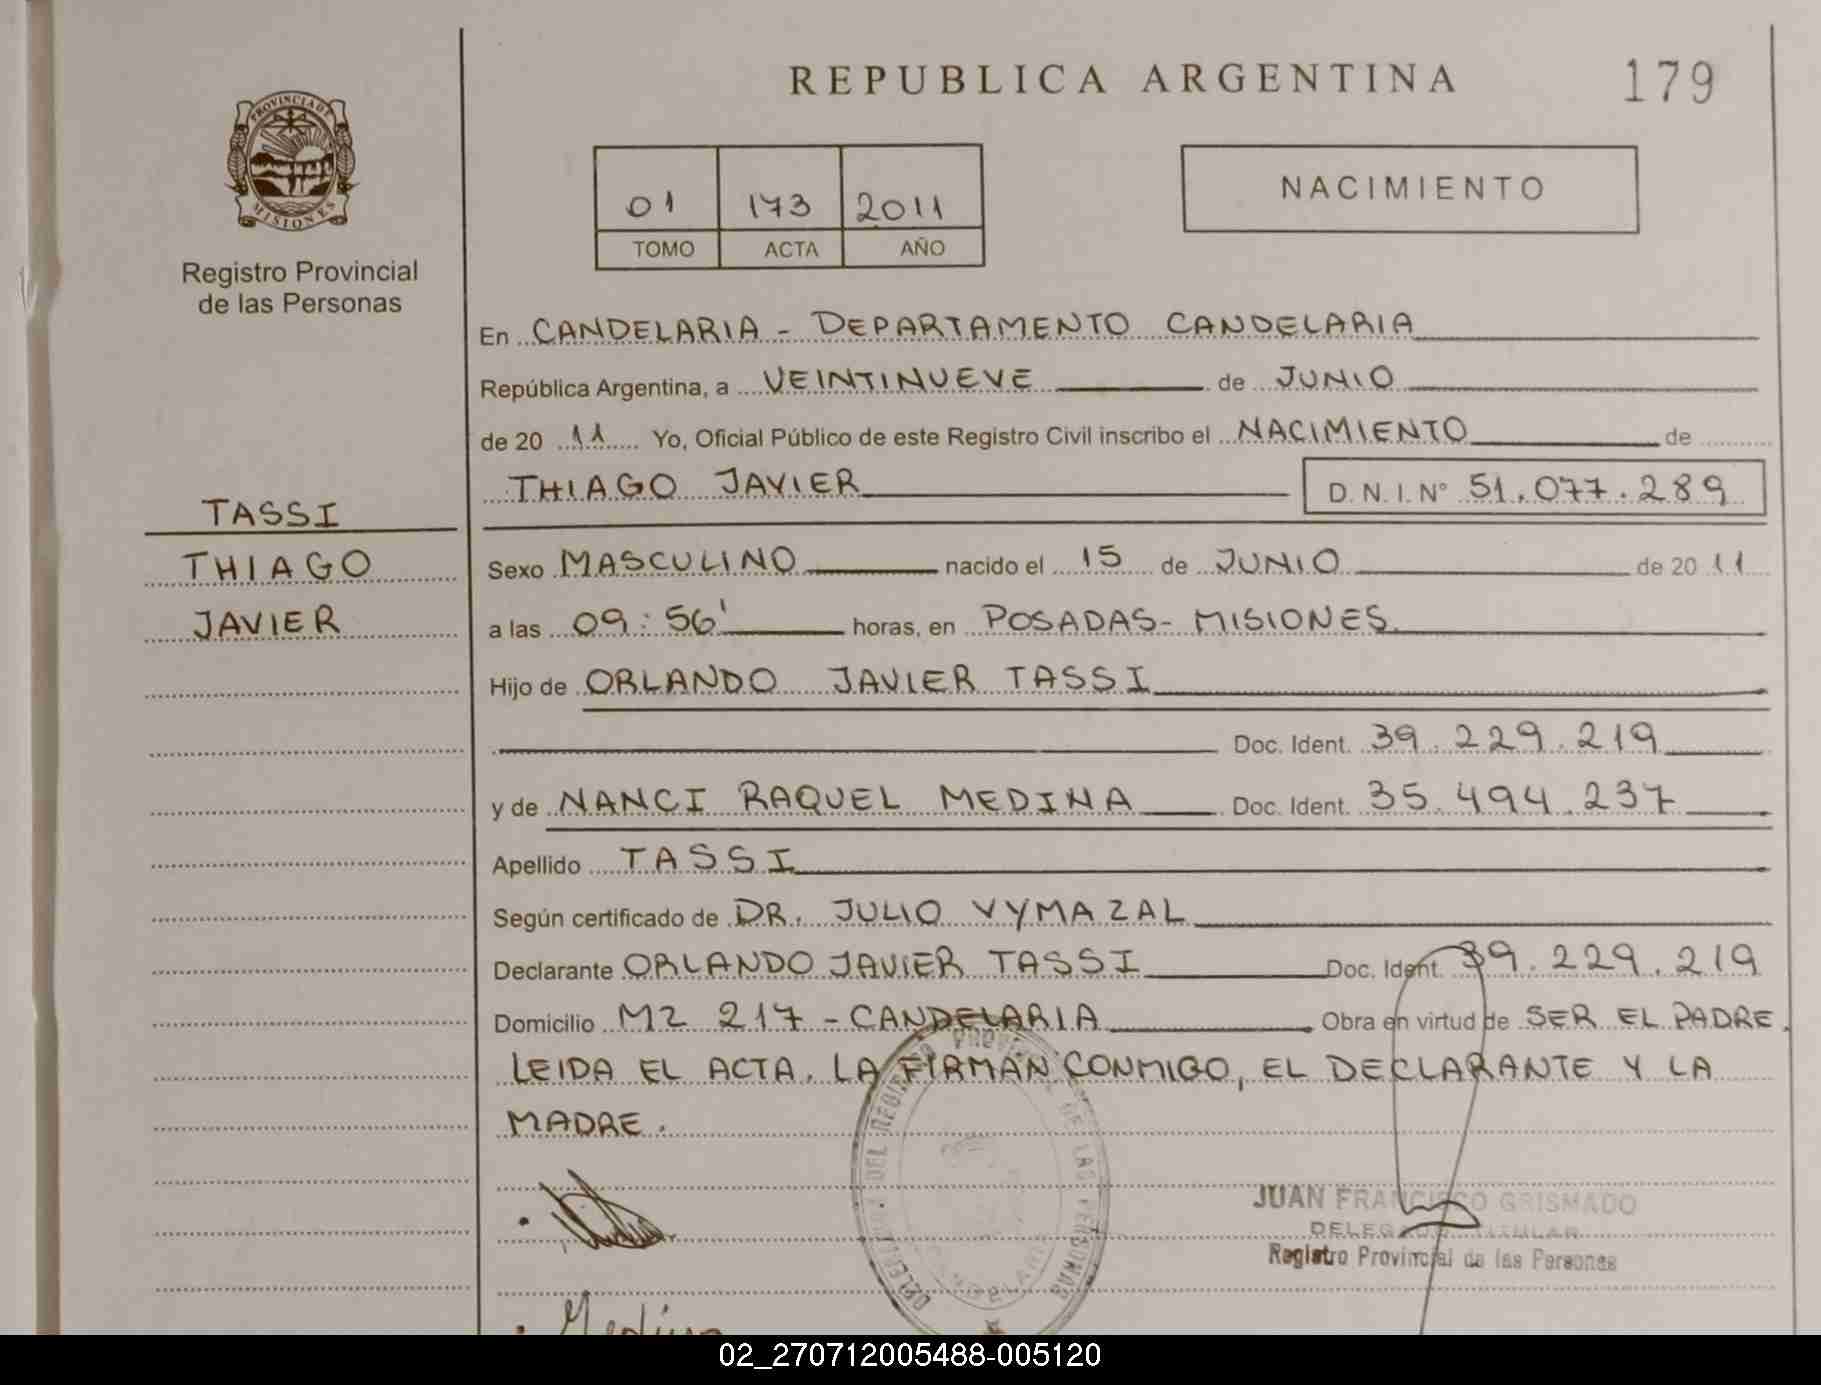 REPUBLICA ARGENTINA
179
PROVINCIA DE
MISIONES
Registro Provincial
de las Personas
01 173 2011
TOMO ACTA AÑO
NACIMIENTO
En CANDELARIA - DEPARTAMENTO CANDELARIA
República Argentina, a VEINTINUEVE de JUNIO
de 20 11 Yo, Oficial Público de este Registro Civil inscribo el NACIMIENTO de
THIAGO JAVIER D.N.I. N° 51.077.289
TASSI
THIAGO
JAVIER
Sexo MASCULINO nacido el 15 de JUNIO de 20 11
a las 09:56' horas, en POSADAS - MISIONES.
Hijo de ORLANDO JAVIER TASSI
Doc. Ident. 39.229.219
y de NANCI RAQUEL MEDINA Doc. Ident. 35.494.237
Apellido TASSI
Según certificado de DR. JULIO VYMAZAL
Declarante ORLANDO JAVIER TASSI Doc. Ident. 39.229.219
Domicilio MZ 217 - CANDELARIA Obra en virtud de SER EL PADRE.
LEIDA EL ACTA, LA FIRMAN CONMIGO, EL DECLARANTE Y LA
MADRE.
DEL REGISTRO PROVINCIAL DE LAS PERSONAS
CANDELARIA
JUAN FRANCISCO GRISMADO
DELEGADO TITULAR
Registro Provincial de las Personas
Medina
02_270712005488-005120